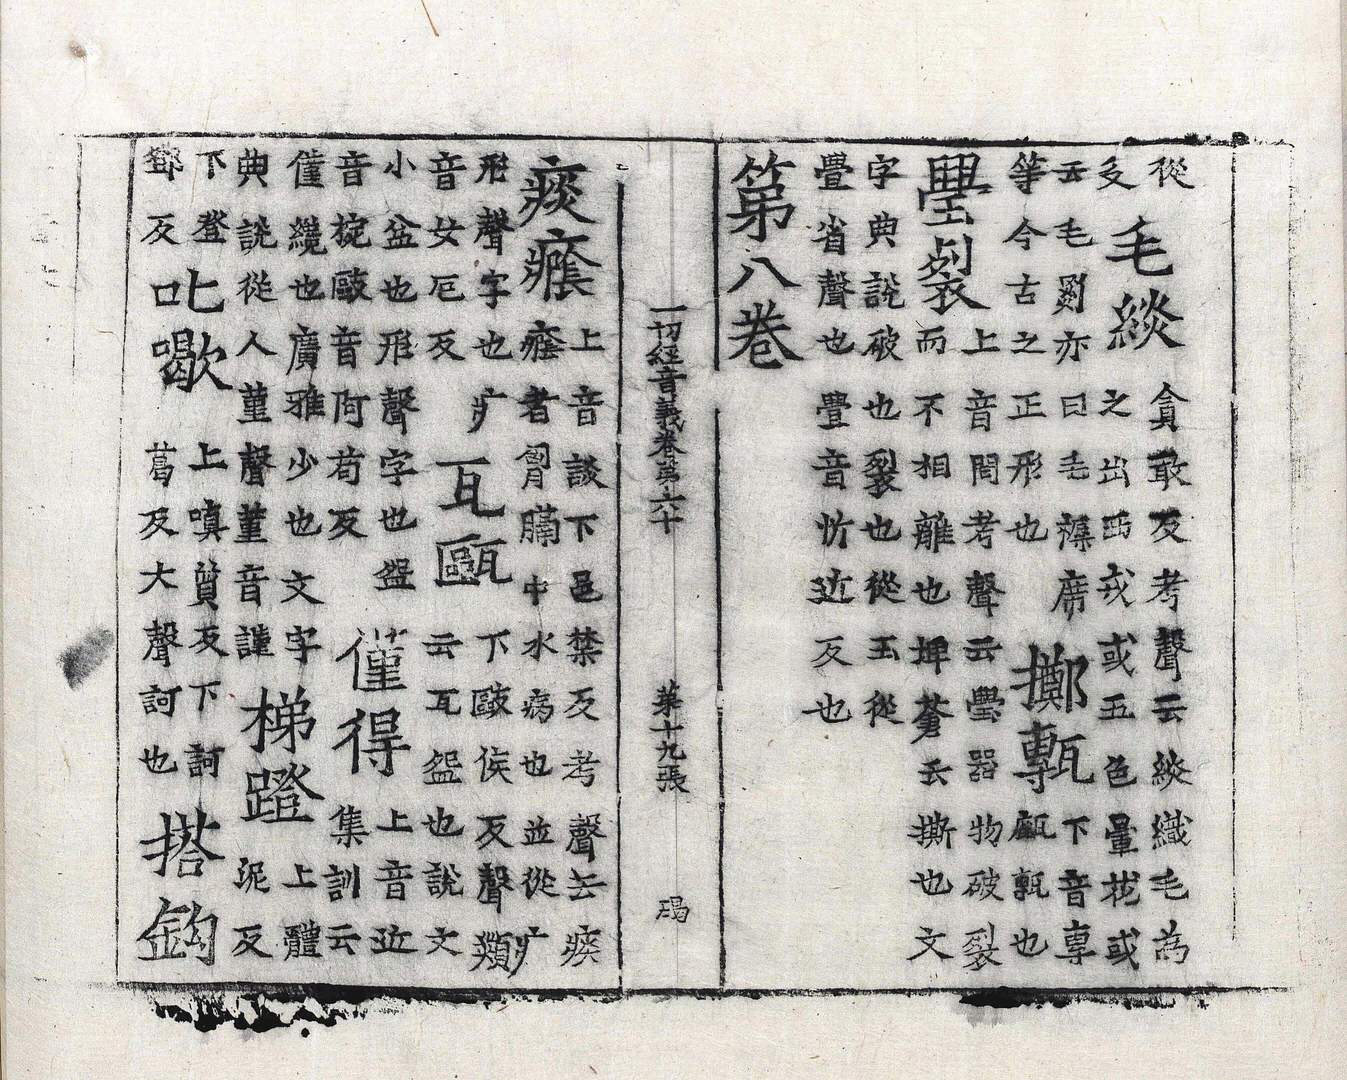 從炙毛緂貪敢反考聲云緂織毛為之出西戎或五色暈或
云毛罽亦曰毛褥席等今古之正形也擲甎下音專甎也
璺裂上音問考聲云璺器物破裂而不相離也埤蒼云撕也文
字典說破也裂也從玉從舋省聲也舋音忻近反也
第八卷
一切經音義卷第六十 第十九張
痰癊上音談下邑禁反考聲云痰癊者胷膈中水病也並從疒
形聲字也疒音女厄反瓦甌下歐侯反聲類云瓦盌也說文
小盆也形聲字也盌音捥歐音阿苟反僅得上音近集訓云
僅纔也廣雅少也文字典說從人堇聲堇音謹梯蹬上體泥反
下登鄧反叱上嗔質反下訶葛反大聲訶也搭鉤